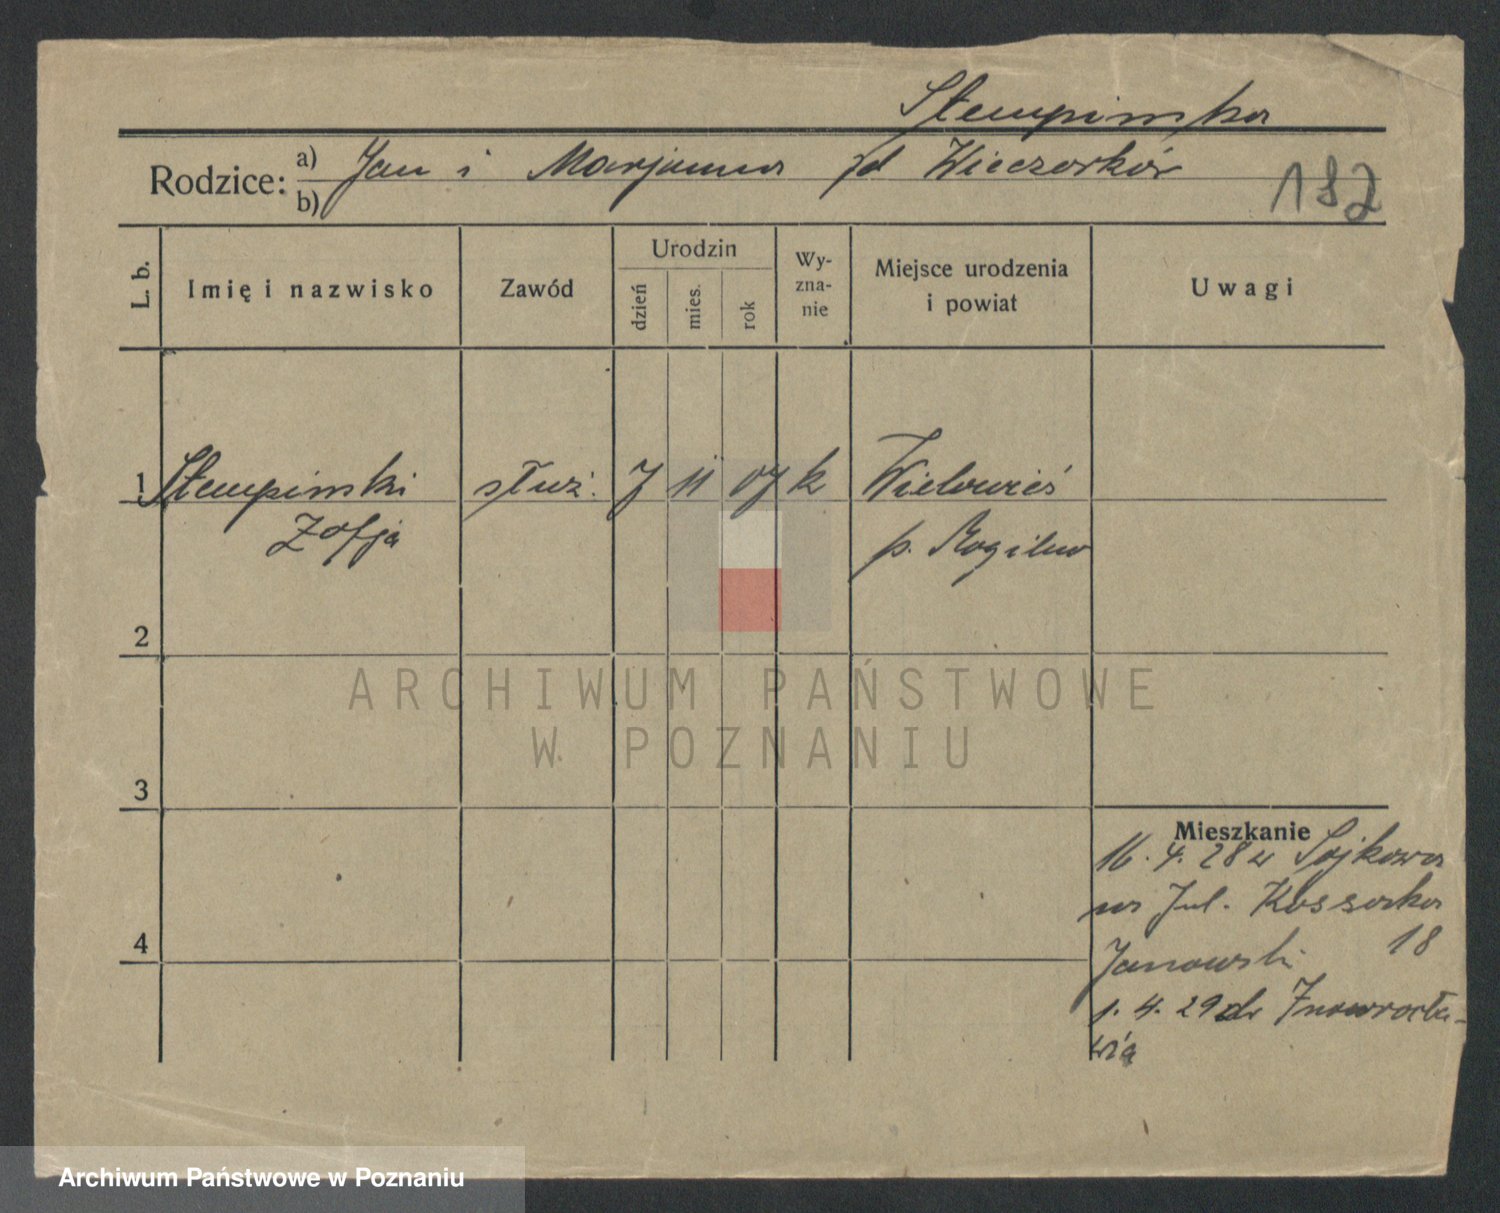 Stempinska
Rodzice: a) Jan i Marjanna zd Wieczorków
b)
187
L. b. Imię i nazwisko Zawód Urodzin dzień mies. rok Wyznanie Miejsce urodzenia i powiat Uwagi
1 Stempinski służ. 7 11 07 k Wielowieś
Zofja p. Mogilno
2
3
Mieszkanie
16. 4. 28 z Sójkowa
na Jul. Kossaka
18
4
Janowski
1. 4. 29 do Inowrocła-
wia
ARCHIWUM PAŃSTWOWE
W POZNANIU
Archiwum Państwowe w Poznaniu